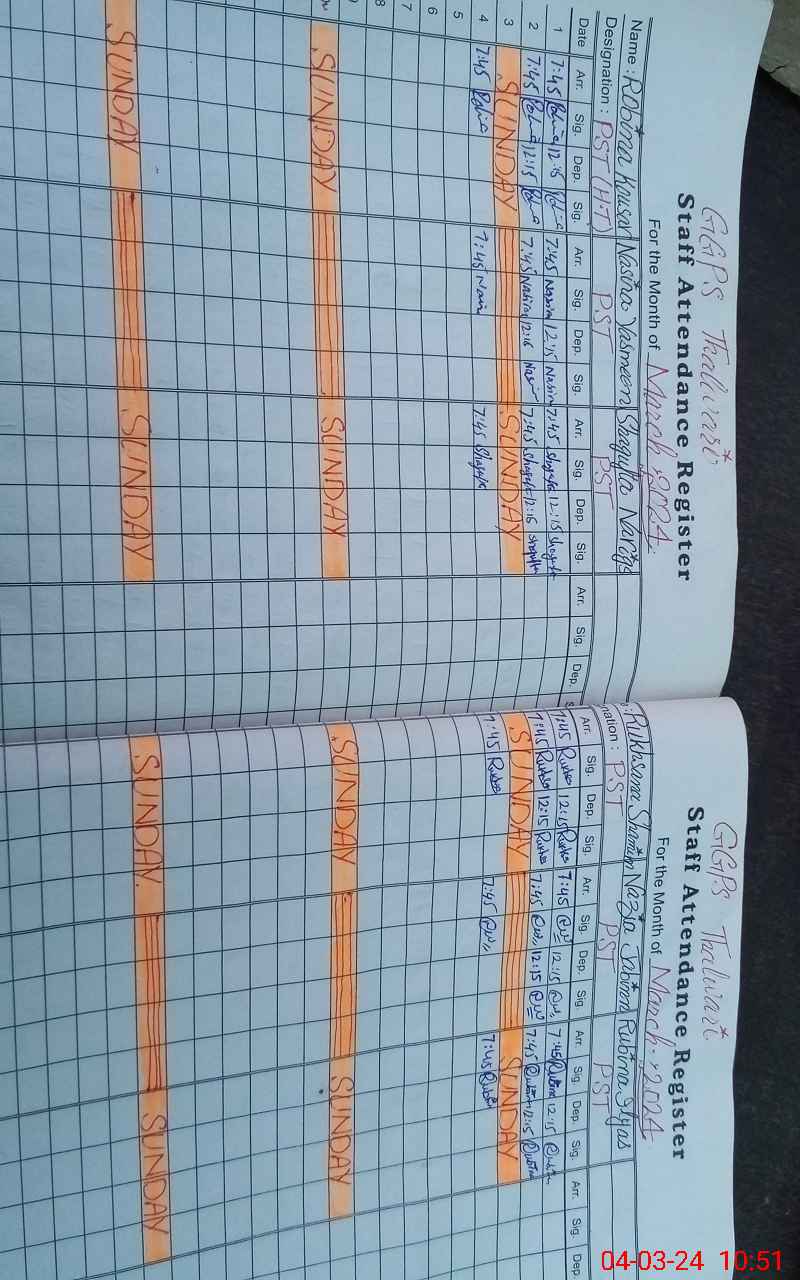 GGPS Thaliwari
Staff Attendance Register
For the Month of March, 2024.
Name: Robina Kousar Nasira Yasmeen Shagufta Nargis
Designation: PST (H.T) PST PST
Date Arr. Sig. Dep. Sig. Arr. Sig. Dep. Sig. Arr. Sig. Dep. Sig. Arr. Sig. Dep.
1 7:45 Robina 12:15 Robina 7:45 Nasira 12:15 Nasira 7:45 Shagufta 12:15 Shagufta
2 7:45 Robina 12:15 Robina 7:45 Nasira 12:15 Nasira 7:45 Shagufta 12:15 Shagufta
3 SUNDAY SUNDAY
4 7:45 Robina 7:45 Nasira 7:45 Shagufta
5
6
7
8
SUNDAY SUNDAY
SUNDAY SUNDAY
GGPS Thaliwari
Staff Attendance Register
For the Month of March-2024
Rukhsana Shamim Nazia Jabeen Rubina Ilyas
nation: PST PST PST
Arr. Sig. Dep. Sig. Arr. Sig. Dep. Sig. Arr. Sig. Dep. Sig. Arr. Sig. Dep
7:45 12:15 7:45 12:15 7:45 Rubina 12:15 Rubina
7:45 12:15 7:45 12:15 7:45 Rubina 12:15 Rubina
SUNDAY SUNDAY
7:45 7:45 7:45 Rubina
SUNDAY SUNDAY
SUNDAY. SUNDAY
04-03-24 10:51